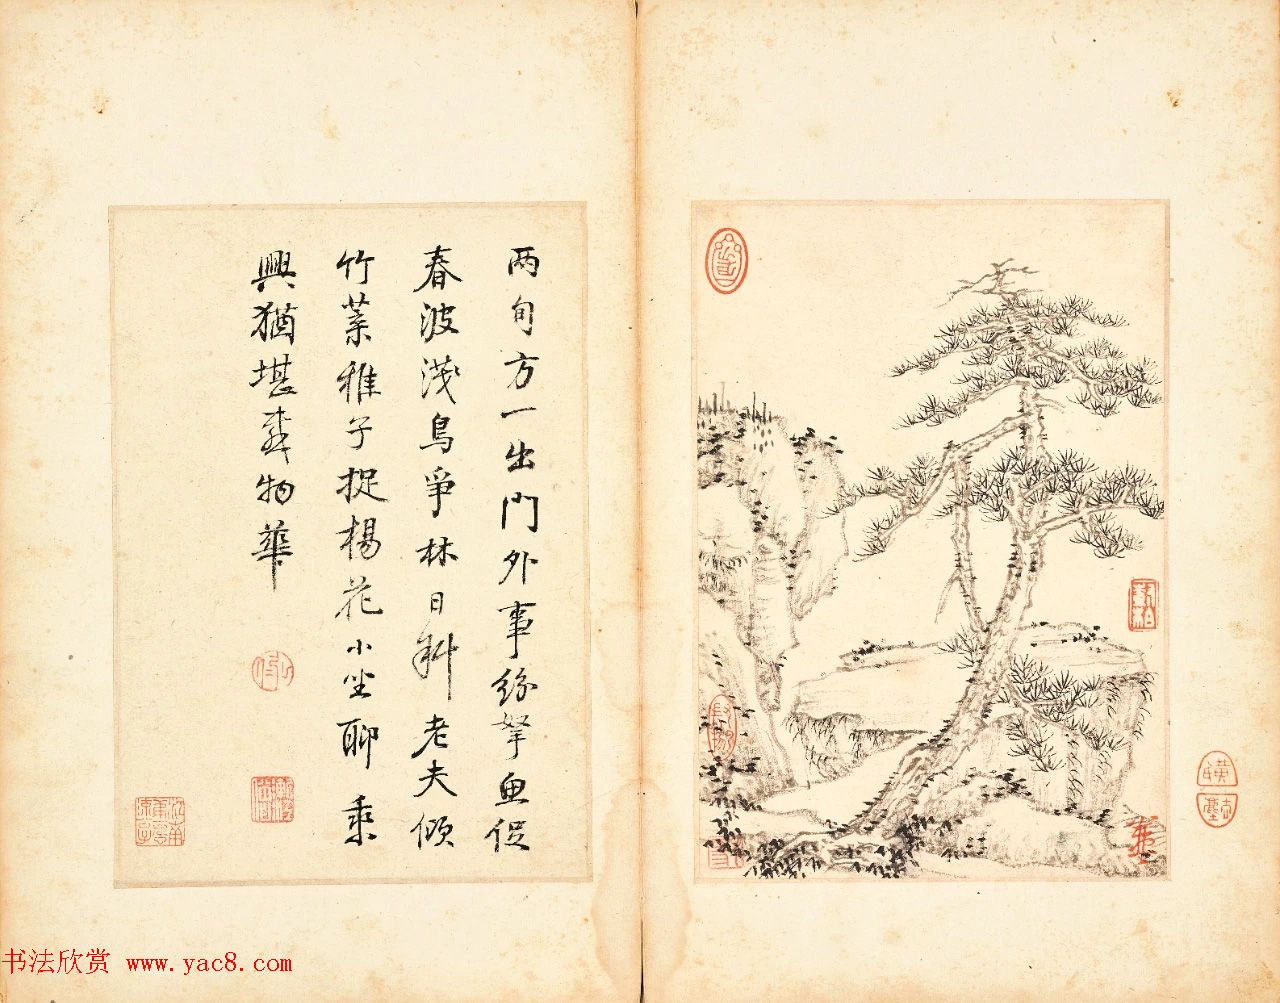 两旬方一出門外事紛拏魚促
春波淺鳥爭林日斜老夫傾
竹葉稚子捉楊花小坐聊乘
興猶堪物華
书法欣赏 www.yac8.com